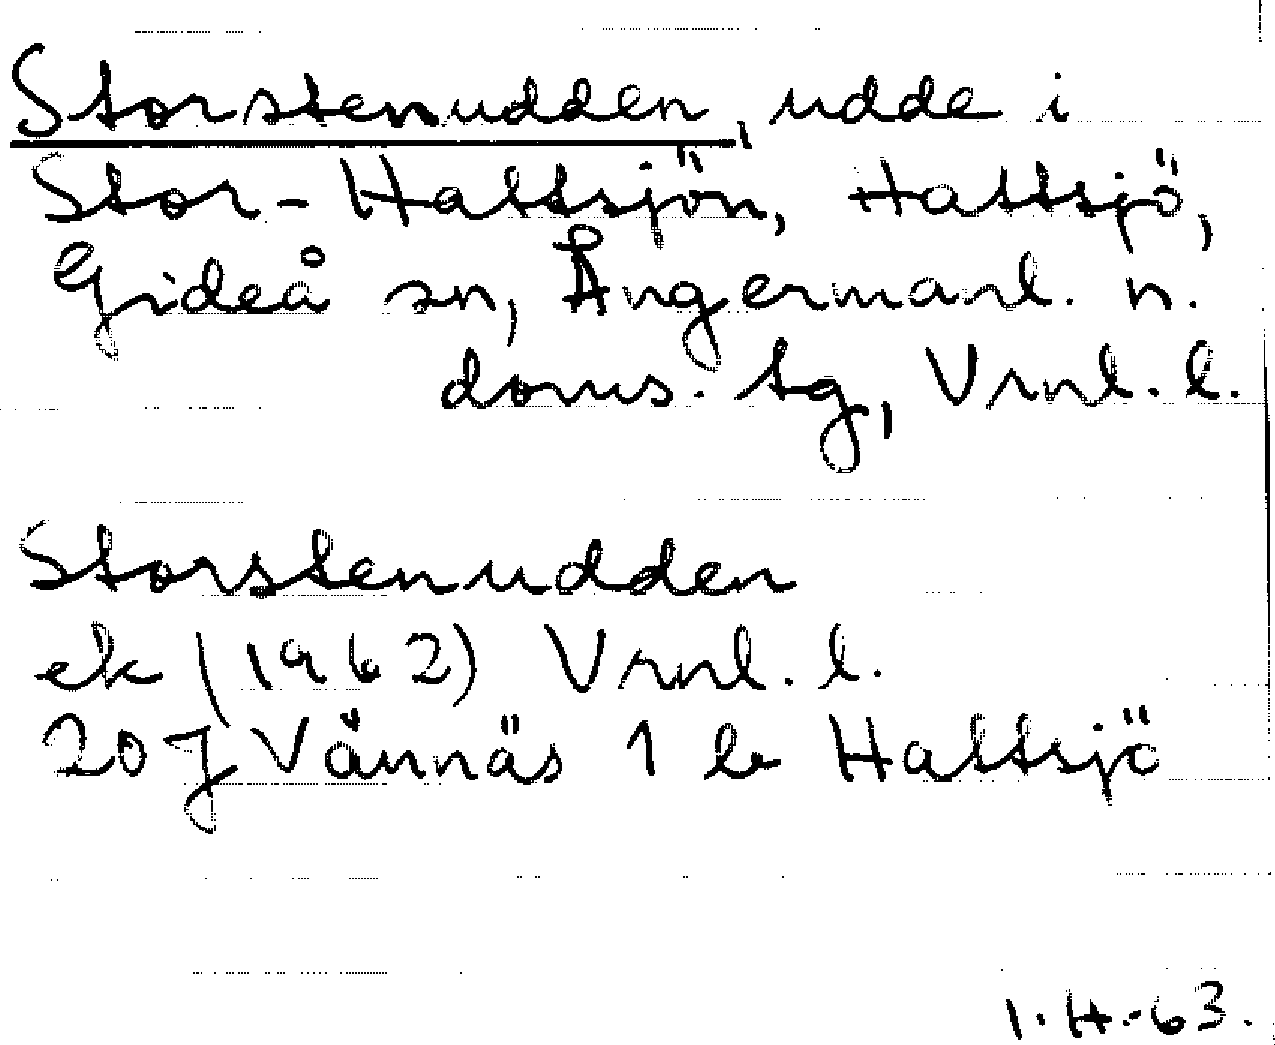 Storstenudden, udde i
Stor-Hattsjön, Hattsjö,
Gideå sn, Ångermanl. n.
doms. tg, Vrnl. l.
Storstenudden
ek (1962) Vrnl. l.
20J Vännäs 1 b Hattsjö
1.H.-63.